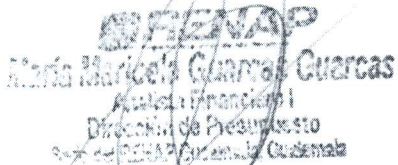 RENAP
María Maricela Guarcas Cuarcas
Analista Financiero I
Dirección de Presupuesto
RENAP Guatemala, Guatemala